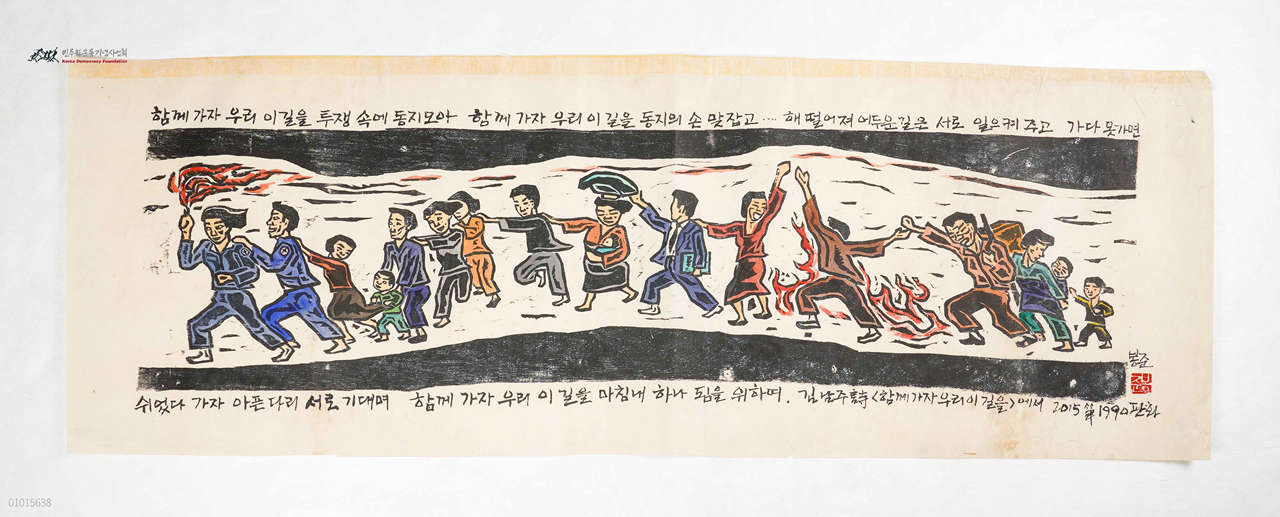 민주화운동기념사업회
Korea Democracy Foundation
함께 가자 우리 이 길을 투쟁 속에 동지모아 함께 가자 우리 이 길을 동지의 손 맞잡고 .... 해 떨어져 어두운 길은 서로 일으켜 주고 가다 못가면
봉준
쉬었다 가자 아픈다리 서로 기대며 함께 가자 우리 이 길을 마침내 하나 됨을 위하여. 김남주 詩 <함께가자 우리 이 길을>에서 2015 1990 판화
01015638